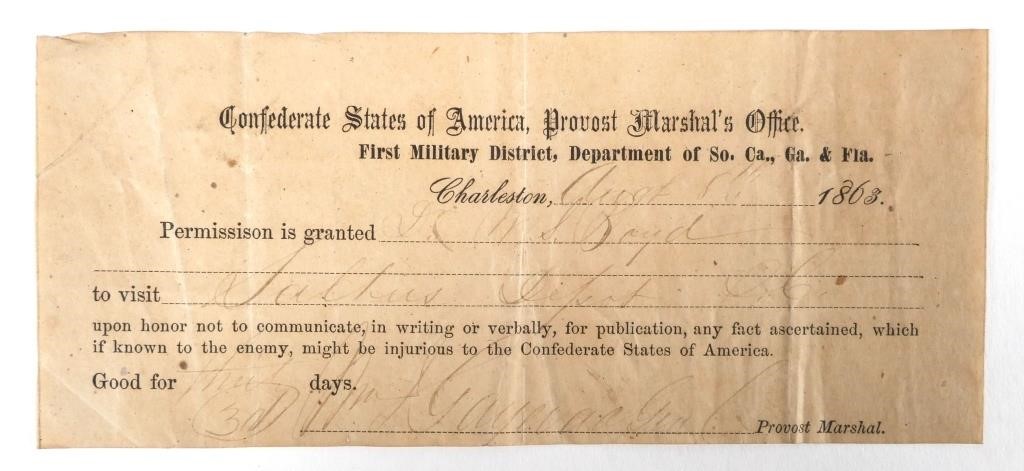 Confederate States of America, Provost Marshal's Office.
First Military District, Department of So. Ca., Ga. & Fla.
Charleston, Augt 8th 1863.
Permissison is granted W. S. Boyd
to visit Depot S. C.
upon honor not to communicate, in writing or verbally, for publication, any fact ascertained, which
if known to the enemy, might be injurious to the Confederate States of America.
Good for thirty days.
(30) Wm
Provost Marshal.